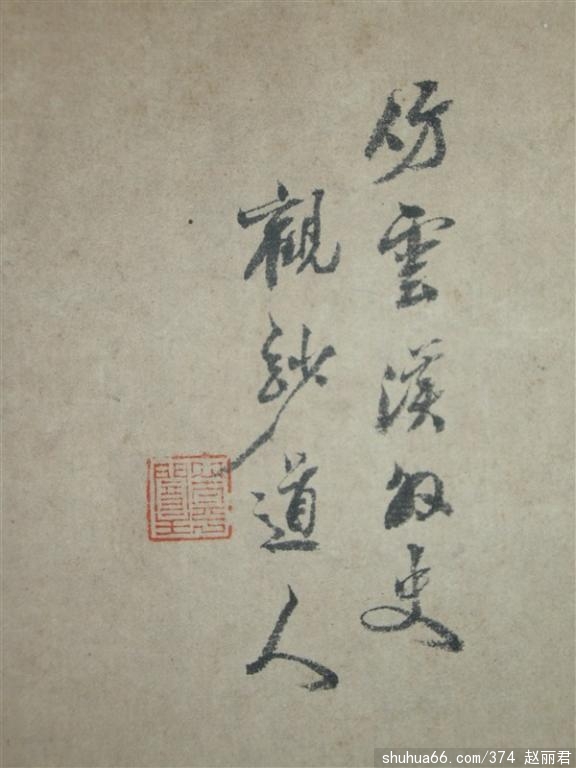 仿雲溪外史
觀玅道人
shuhua66.com/374 赵丽君